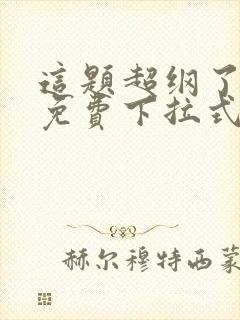 這題超纲了
免費下拉式
赫尔穆特西蒙